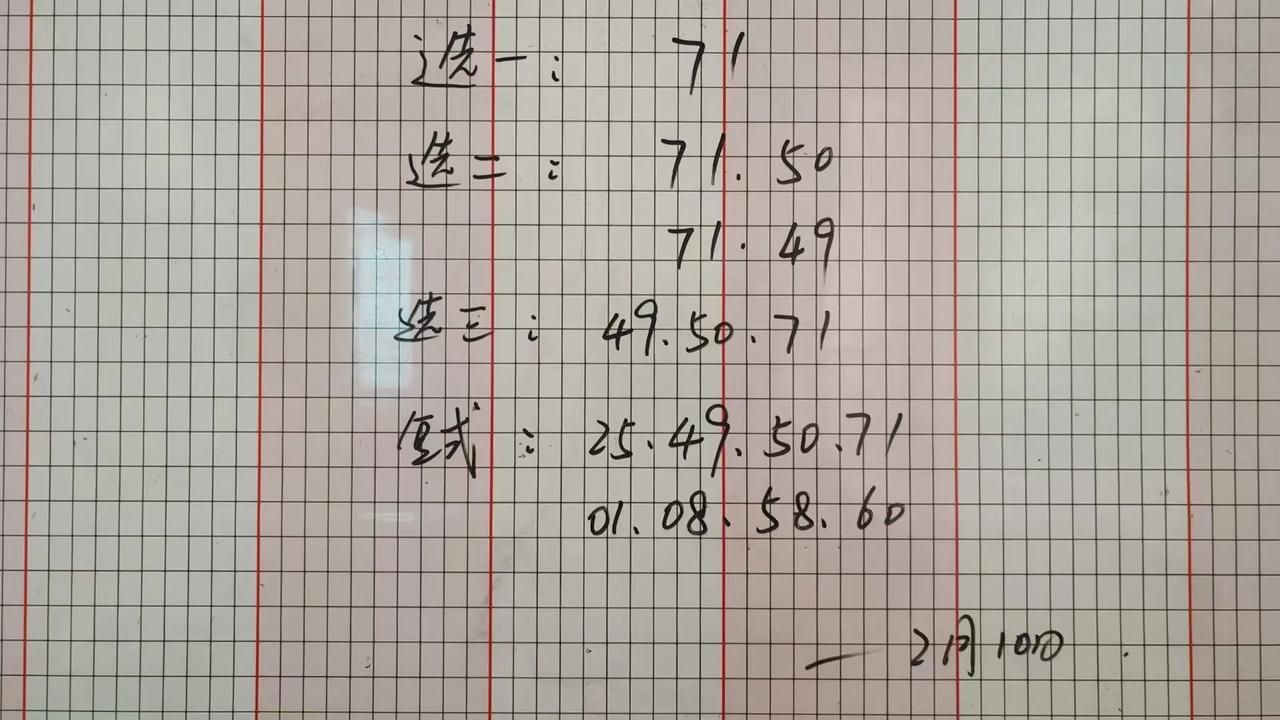 选一: 71
选二: 71. 50
71. 49
选三: 49.50.71
复式: 25.49.50.71
01.08.58.60
— 2月10日.